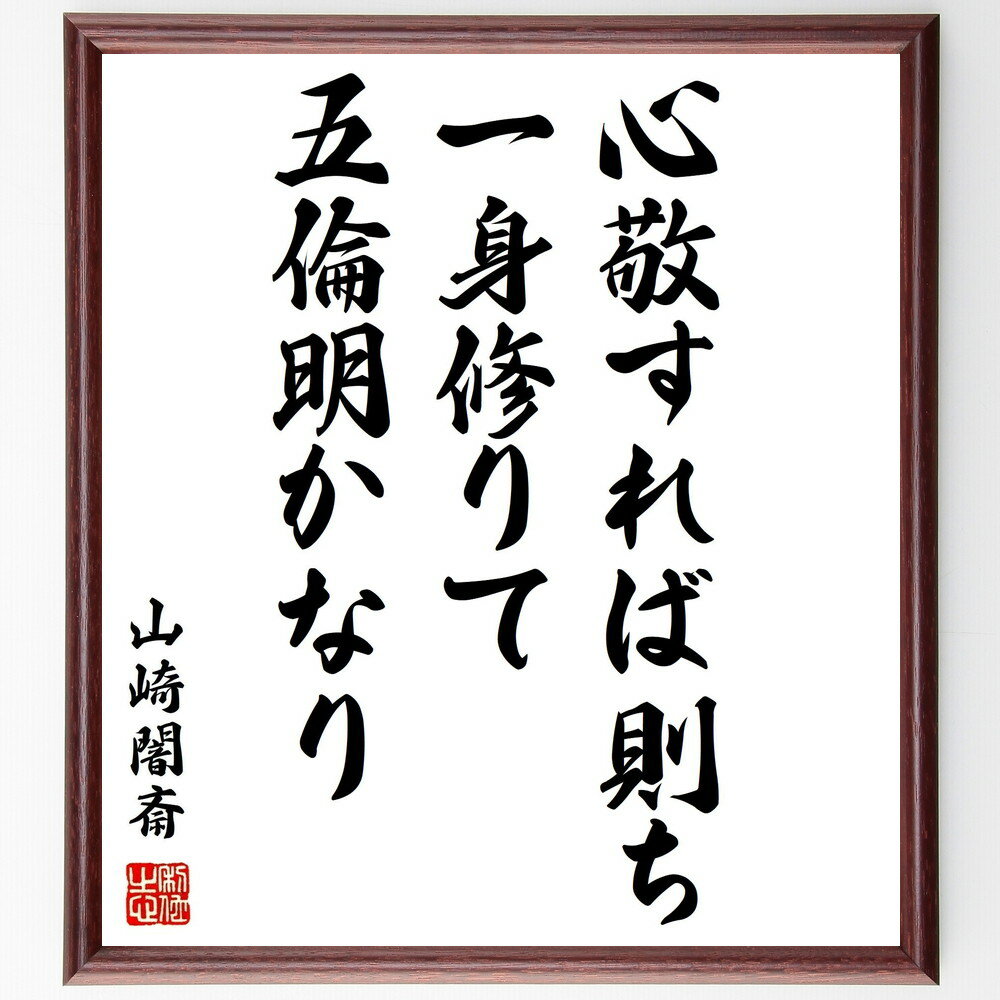 心敬すれば則ち
一身修りて
五倫明かなり
山崎闇斎